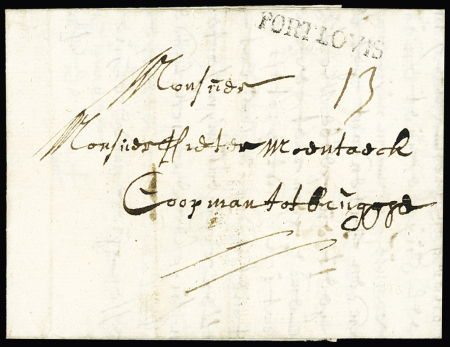 PORT LOVIS
Monsieur
13
Monsieur Pieter Moentaeck
Coopman tot Brugge